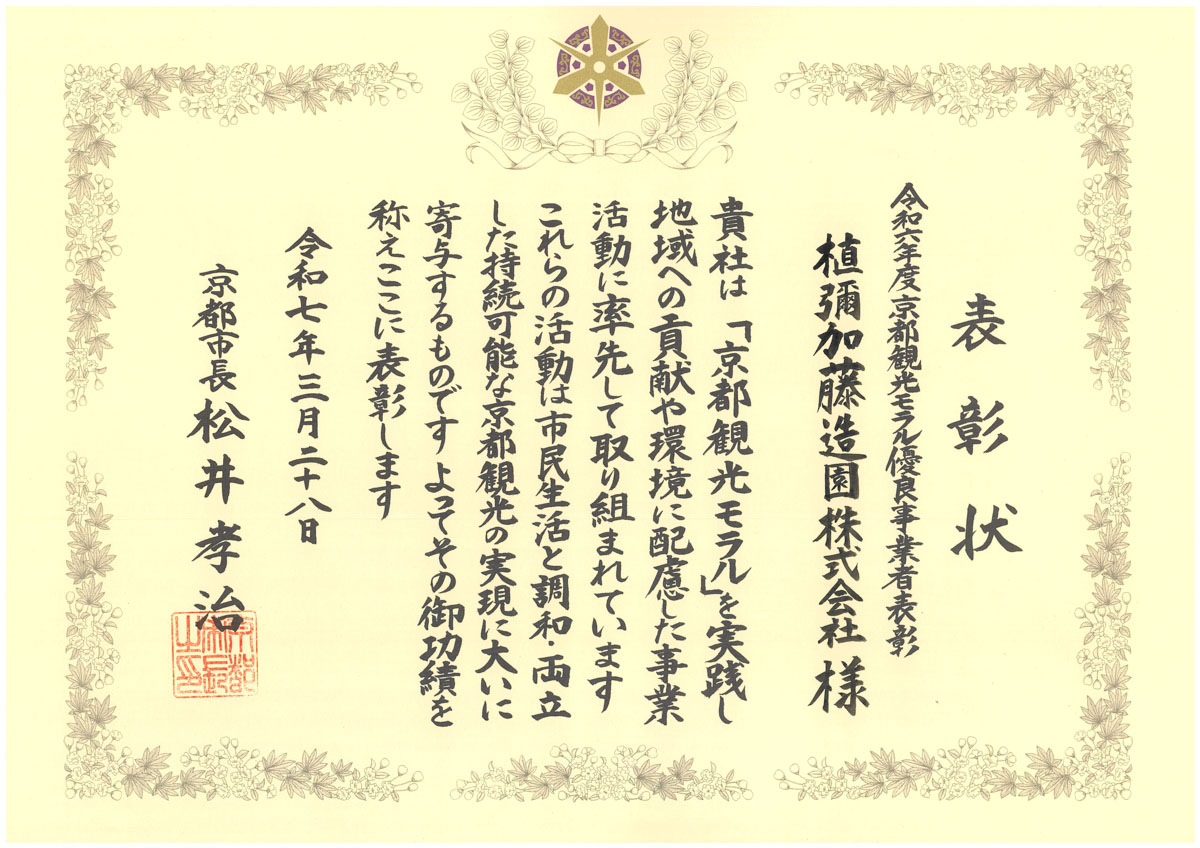 表彰状
令和六年度京都観光モラル優良事業者表彰
植彌加藤造園株式会社 様
貴社は「京都観光モラル」を実践し
地域への貢献や環境に配慮した事業
活動に率先して取り組まれています
これらの活動は市民生活と調和・両立
した持続可能な京都観光の実現に大いに
寄与するものです よってその御功績を
称えここに表彰します
令和七年三月二十八日
京都市長 松井孝治
京都
市長
之印